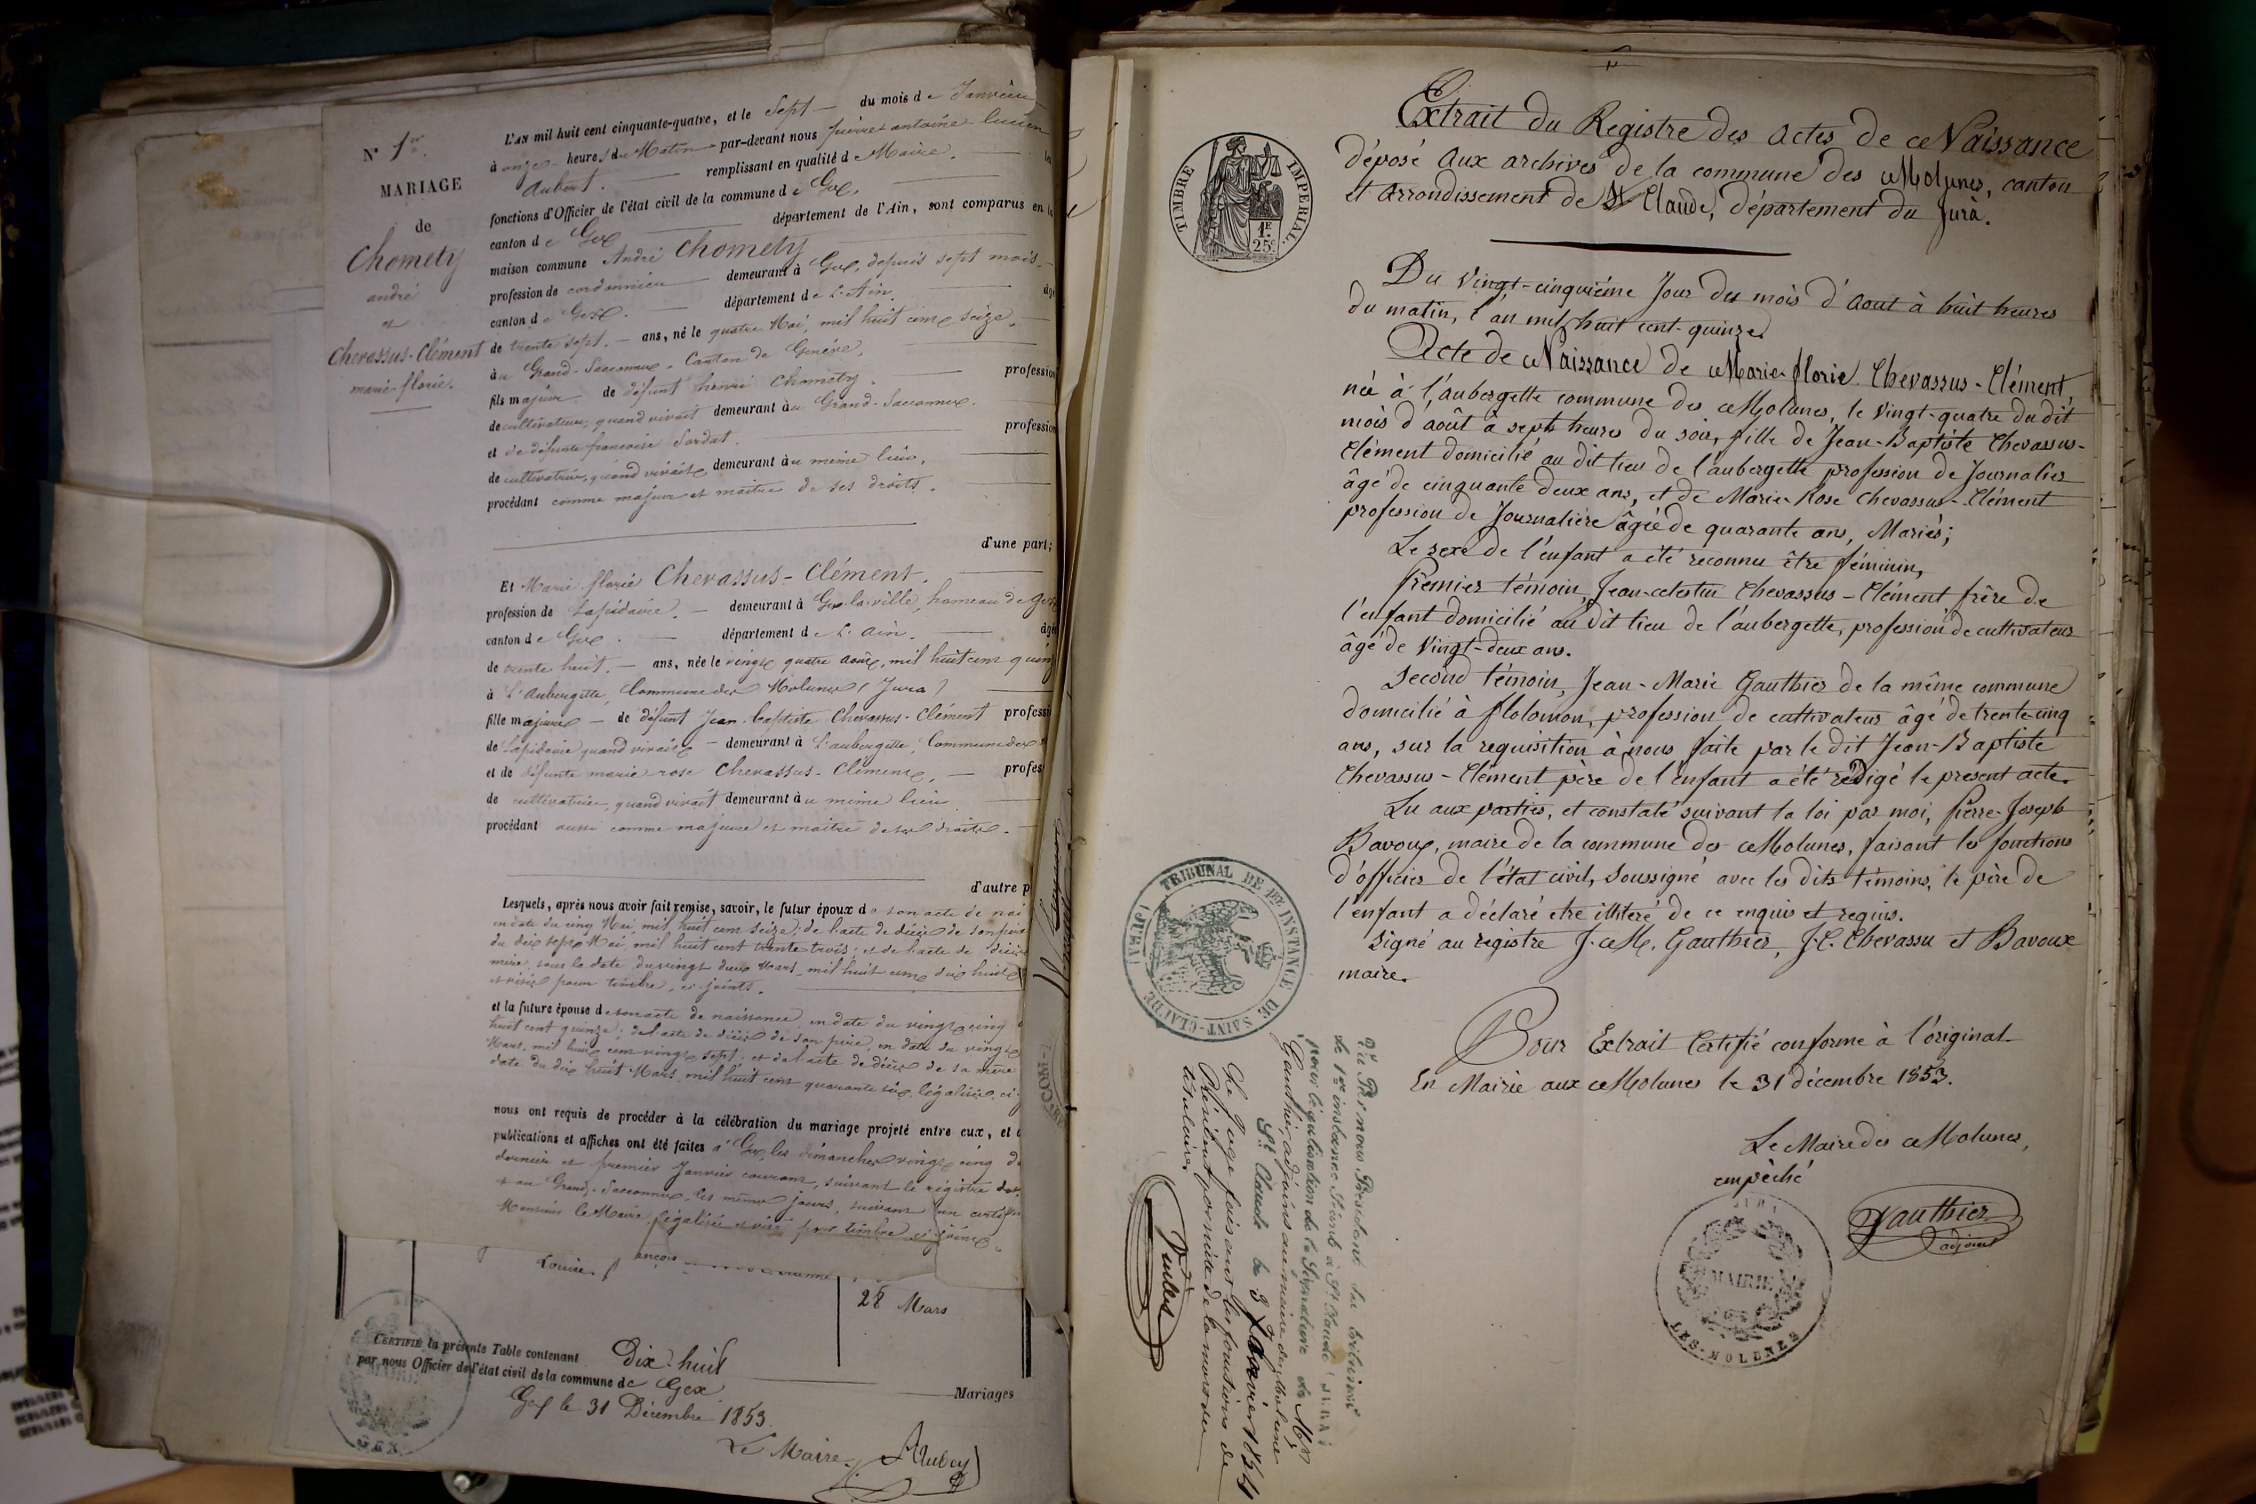 N° 1er
MARIAGE
de
Chomety
andré
et
Chevassus-Clément
marie-florie.
L'AN mil huit cent cinquante-quatre, et le Sept du mois de Janvier
à onze heures du Matin par-devant nous pierre antoine lucien
Aubert. remplissant en qualité de Maire. les
fonctions d'Officier de l'état civil de la commune de Gex,
canton de Gex département de l'Ain, sont comparus en la
maison commune André Chomety
profession de cordonnier demeurant à Gex, depuis sept mois,
canton de Gex. département de L'Ain. âgé
de trente sept. ans, né le quatre Mai, mil huit cent seize,
au Grand-Sacconnex, Canton de Genève,
fils majeur de défunt henri Chomety. profession
de cultivateur, quand vivait demeurant au Grand-Sacconnex.
et de défunte francoise Sordat. profession
de cultivatrice, quand vivait demeurant au même lieu,
procédant comme majeur et maître de ses droits.
d'une part;
Et Marie florie Chevassus-Clément.
profession de Lapidaire. demeurant à Gex-la-ville, hameau de Gex
canton de Gex. département de L'Ain. âgée
de trente huit. ans, née le vingt quatre août, mil huit cent quinze
à L'Aubergette, Commune des Molunes (Jura)
fille majeure de défunt Jean-baptiste Chevassus-Clément professi
de Lapidaire quand vivait demeurant à L'aubergette, Commune des
et de défunte marie rose Chevassus-Clément, profes
de cultivatrice, quand vivait demeurant au même lieu
procédant aussi comme majeure et maître de ses droits.
d'autre p
Lesquels, après nous avoir fait remise, savoir, le futur époux de son acte de nai
en date du cinq Mai, mil huit cent seize; de l'acte de décès de son père
du dix sept Mai, mil huit cent trente trois; et de l'acte de décès
mère, sous la date du vingt deux Mars, mil huit cent dix huit
et visés pour timbre, ci-joints.
et la future épouse de son acte de naissance, en date du vingt cinq
huit cent quinze; de l'acte de décès de son père, en date du vingt
Mars, mil huit cent vingt sept; et de l'acte de décès de sa mère
date du dix huit Mars, mil huit cent quarante six, légalisés, ci-
nous ont requis de procéder à la célébration du mariage projeté entre eux, et
publications et affiches ont été faites à Gex, les dimanches vingt cinq
dernier et premier Janvier courant, suivant le registre
et au Grand-Sacconnex, les mêmes jours, suivant un certif
Monsieur le Maire, légalisé et visé pour timbre ci-joint.
Louise,
28 Mars
CERTIFIÉ la présente Table contenant Dix-huit Mariages
par nous Officier de l'état civil de la commune de Gex
Gex le 31 Décembre 1853.
Le Maire.
MAIRIE
GEX
TIMBRE IMPERIAL.
1F.
25C.
Extrait du Registre des Actes de Naissance
déposé aux archives de la commune des Molunes, canton
et arrondissement de St Claude, département du Jura.
Du vingt-cinquième Jour du mois d'Aout à huit heures
du matin, l'an mil huit cent-quinze.
Acte de Naissance de Marie-florie Chevassus-Clément,
née à l'aubergette commune des Molunes, le vingt-quatre du dit
mois d'août à sept heures du soir, fille de Jean-Baptiste Chevassus-
Clément domicilié au dit lieu de l'aubergette profession de Journalier
âgé de cinquante deux ans, et de Marie-Rose Chevassus-Clément
profession de Journalière âgée de quarante ans, Mariés;
Le sexe de l'enfant a été reconnu être féminin,
Premier témoin, Jean-celestin Chevassus-Clément frère de
l'enfant domicilié au dit lieu de l'aubergette, profession de cultivateur
âgé de vingt-deux ans.
Second témoin, Jean-Marie Gauthier de la même commune
domicilié à flolomon, profession de cultivateur âgé de trente-cinq
ans, sur la requisition à nous faite par le dit Jean-Baptiste
Chevassus-Clément père de l'enfant a été rédigé le present acte.
Lu aux parties, et constaté suivant la loi par moi, Pierre-Joseph
Bavoux, maire de la commune des Molunes, faisant les fonctions
d'officier de l'état civil, soussigné avec les dits témoins, le père de
l'enfant a déclaré etre illiteré de ce enquis et requis.
Signé au registre J. M. Gauthier, J. C. Chevassu et Bavoux
maire.
Pour Extrait Certifié conforme à l'original
En Mairie aux Molunes le 31 décembre 1853.
Le Maire des Molunes,
empêché
Gauthier
adjoint
MAIRIE
LES-MOLUNES
TRIBUNAL DE 1ère INSTANCE DE SAINT-CLAUDE (JURA)
Vu Par nous Président du tribunal
de 1ère instance Séant à St Claude (JURA)
pour légalisation de la Signature de Mr
Gauthier, adjoint au maire des Molunes
St Claude le 3 Janvier 1854
Le Juge faisant les fonctions de
Président par suite de la mort du
titulaire,